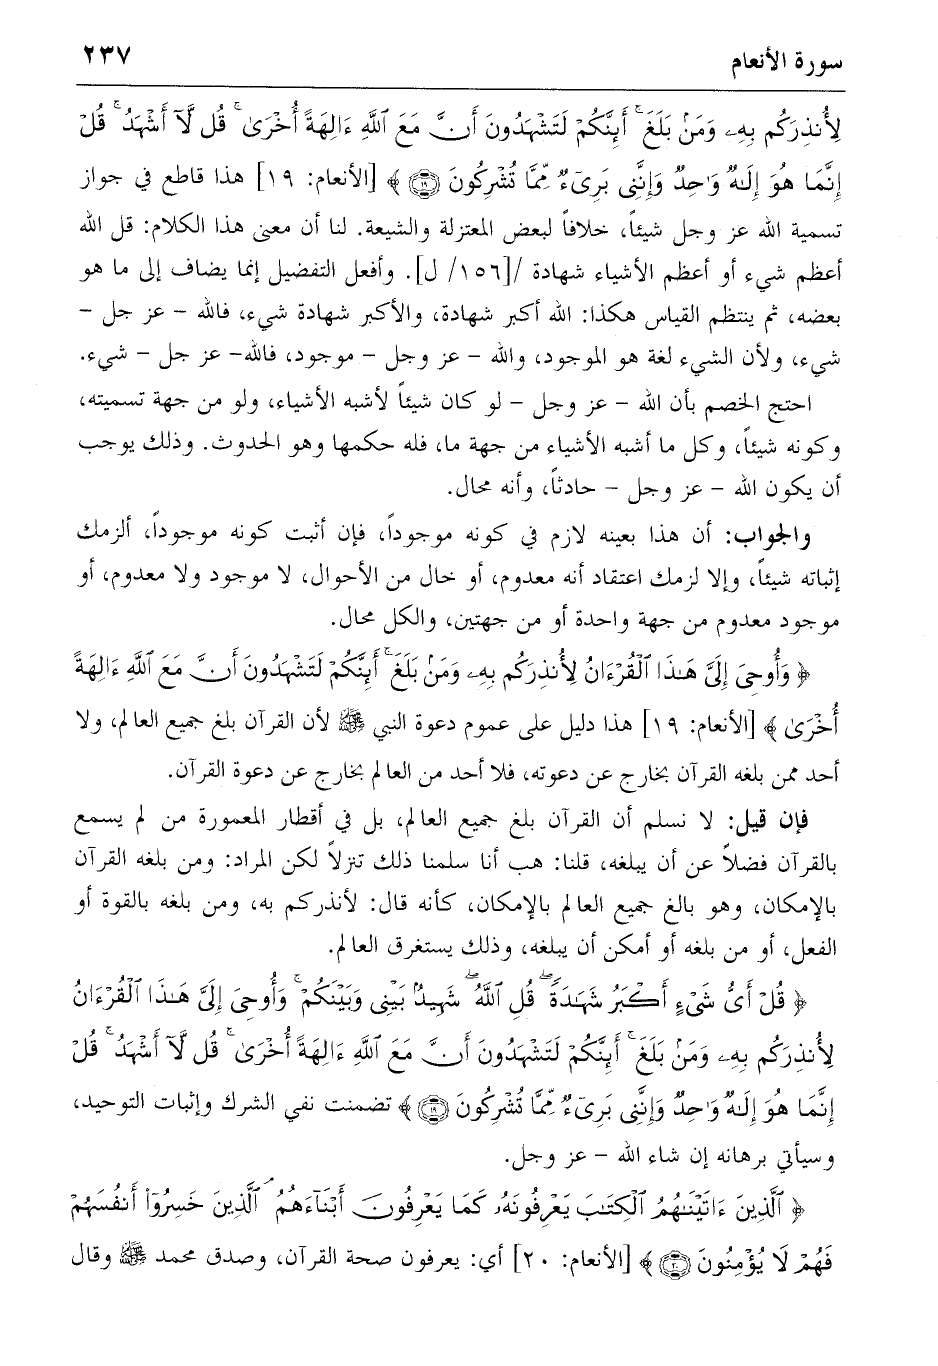 سورة الأنعام ٢٣٧
لِأُنذِرَكُم بِهِۦ وَمَنۢ بَلَغَ ۚ أَئِنَّكُمْ لَتَشْهَدُونَ أَنَّ مَعَ ٱللَّهِ ءَالِهَةً أُخْرَىٰ ۚ قُل لَّآ أَشْهَدُ ۚ قُلْ
إِنَّمَا هُوَ إِلَـٰهٌ وَٰحِدٌ وَإِنَّنِى بَرِىٓءٌ مِّمَّا تُشْرِكُونَ ١٩ ﴾ [الأنعام: ١٩] هذا قاطع في جواز
تسمية الله عز وجل شيئاً، خلافاً لبعض المعتزلة والشيعة. لنا أن معنى هذا الكلام: قل الله
أعظم شيء أو أعظم الأشياء شهادة /[١٥٦/ ل]. وأفعل التفضيل إنما يضاف إلى ما هو
بعضه، ثم ينتظم القياس هكذا: الله أكبر شهادة، والأكبر شهادة شيء، فالله - عز جل -
شيء، ولأن الشيء لغة هو الموجود، والله - عز وجل - موجود، فالله- عز جل - شيء.
احتج الخصم بأن الله - عز وجل - لو كان شيئاً لأشبه الأشياء، ولو من جهة تسميته،
وكونه شيئاً، وكل ما أشبه الأشياء من جهة ما، فله حكمها وهو الحدوث. وذلك يوجب
أن يكون الله - عز وجل - حادثاً، وأنه محال.
والجواب: أن هذا بعينه لازم في كونه موجوداً، فإن أثبت كونه موجوداً، ألزمك
إثباته شيئاً، وإلا لزمك اعتقاد أنه معدوم، أو خال من الأحوال، لا موجود ولا معدوم، أو
موجود معدوم من جهة واحدة أو من جهتين، والكل محال.
﴿ وَأُوحِىَ إِلَىَّ هَـٰذَا ٱلْقُرْءَانُ لِأُنذِرَكُم بِهِۦ وَمَنۢ بَلَغَ ۚ أَئِنَّكُمْ لَتَشْهَدُونَ أَنَّ مَعَ ٱللَّهِ ءَالِهَةً
أُخْرَىٰ ﴾ [الأنعام: ١٩] هذا دليل على عموم دعوة النبي ﷺ لأن القرآن بلغ جميع العالم، ولا
أحد ممن بلغه القرآن بخارج عن دعوته، فلا أحد من العالم بخارج عن دعوة القرآن.
فإن قيل: لا نسلم أن القرآن بلغ جميع العالم، بل في أقطار المعمورة من لم يسمع
بالقرآن فضلاً عن أن يبلغه، قلنا: هب أنا سلمنا ذلك تنزلاً لكن المراد: ومن بلغه القرآن
بالإمكان، وهو بالغ جميع العالم بالإمكان، كأنه قال: لأنذركم به، ومن بلغه بالقوة أو
الفعل، أو من بلغه أو أمكن أن يبلغه، وذلك يستغرق العالم.
﴿ قُلْ أَىُّ شَىْءٍ أَكْبَرُ شَهَـٰدَةً ۖ قُلِ ٱللَّهُ ۖ شَهِيدٌۢ بَيْنِى وَبَيْنَكُمْ ۚ وَأُوحِىَ إِلَىَّ هَـٰذَا ٱلْقُرْءَانُ
لِأُنذِرَكُم بِهِۦ وَمَنۢ بَلَغَ ۚ أَئِنَّكُمْ لَتَشْهَدُونَ أَنَّ مَعَ ٱللَّهِ ءَالِهَةً أُخْرَىٰ ۚ قُل لَّآ أَشْهَدُ ۚ قُلْ
إِنَّمَا هُوَ إِلَـٰهٌ وَٰحِدٌ وَإِنَّنِى بَرِىٓءٌ مِّمَّا تُشْرِكُونَ ١٩ ﴾ تضمنت نفي الشرك وإثبات التوحيد،
وسيأتي برهانه إن شاء الله - عز وجل.
﴿ ٱلَّذِينَ ءَاتَيْنَـٰهُمُ ٱلْكِتَـٰبَ يَعْرِفُونَهُۥ كَمَا يَعْرِفُونَ أَبْنَآءَهُمُ ۘ ٱلَّذِينَ خَسِرُوٓا۟ أَنفُسَهُمْ
فَهُمْ لَا يُؤْمِنُونَ ٢٠ ﴾ [الأنعام: ٢٠] أي: يعرفون صحة القرآن، وصدق محمد ﷺ وقال